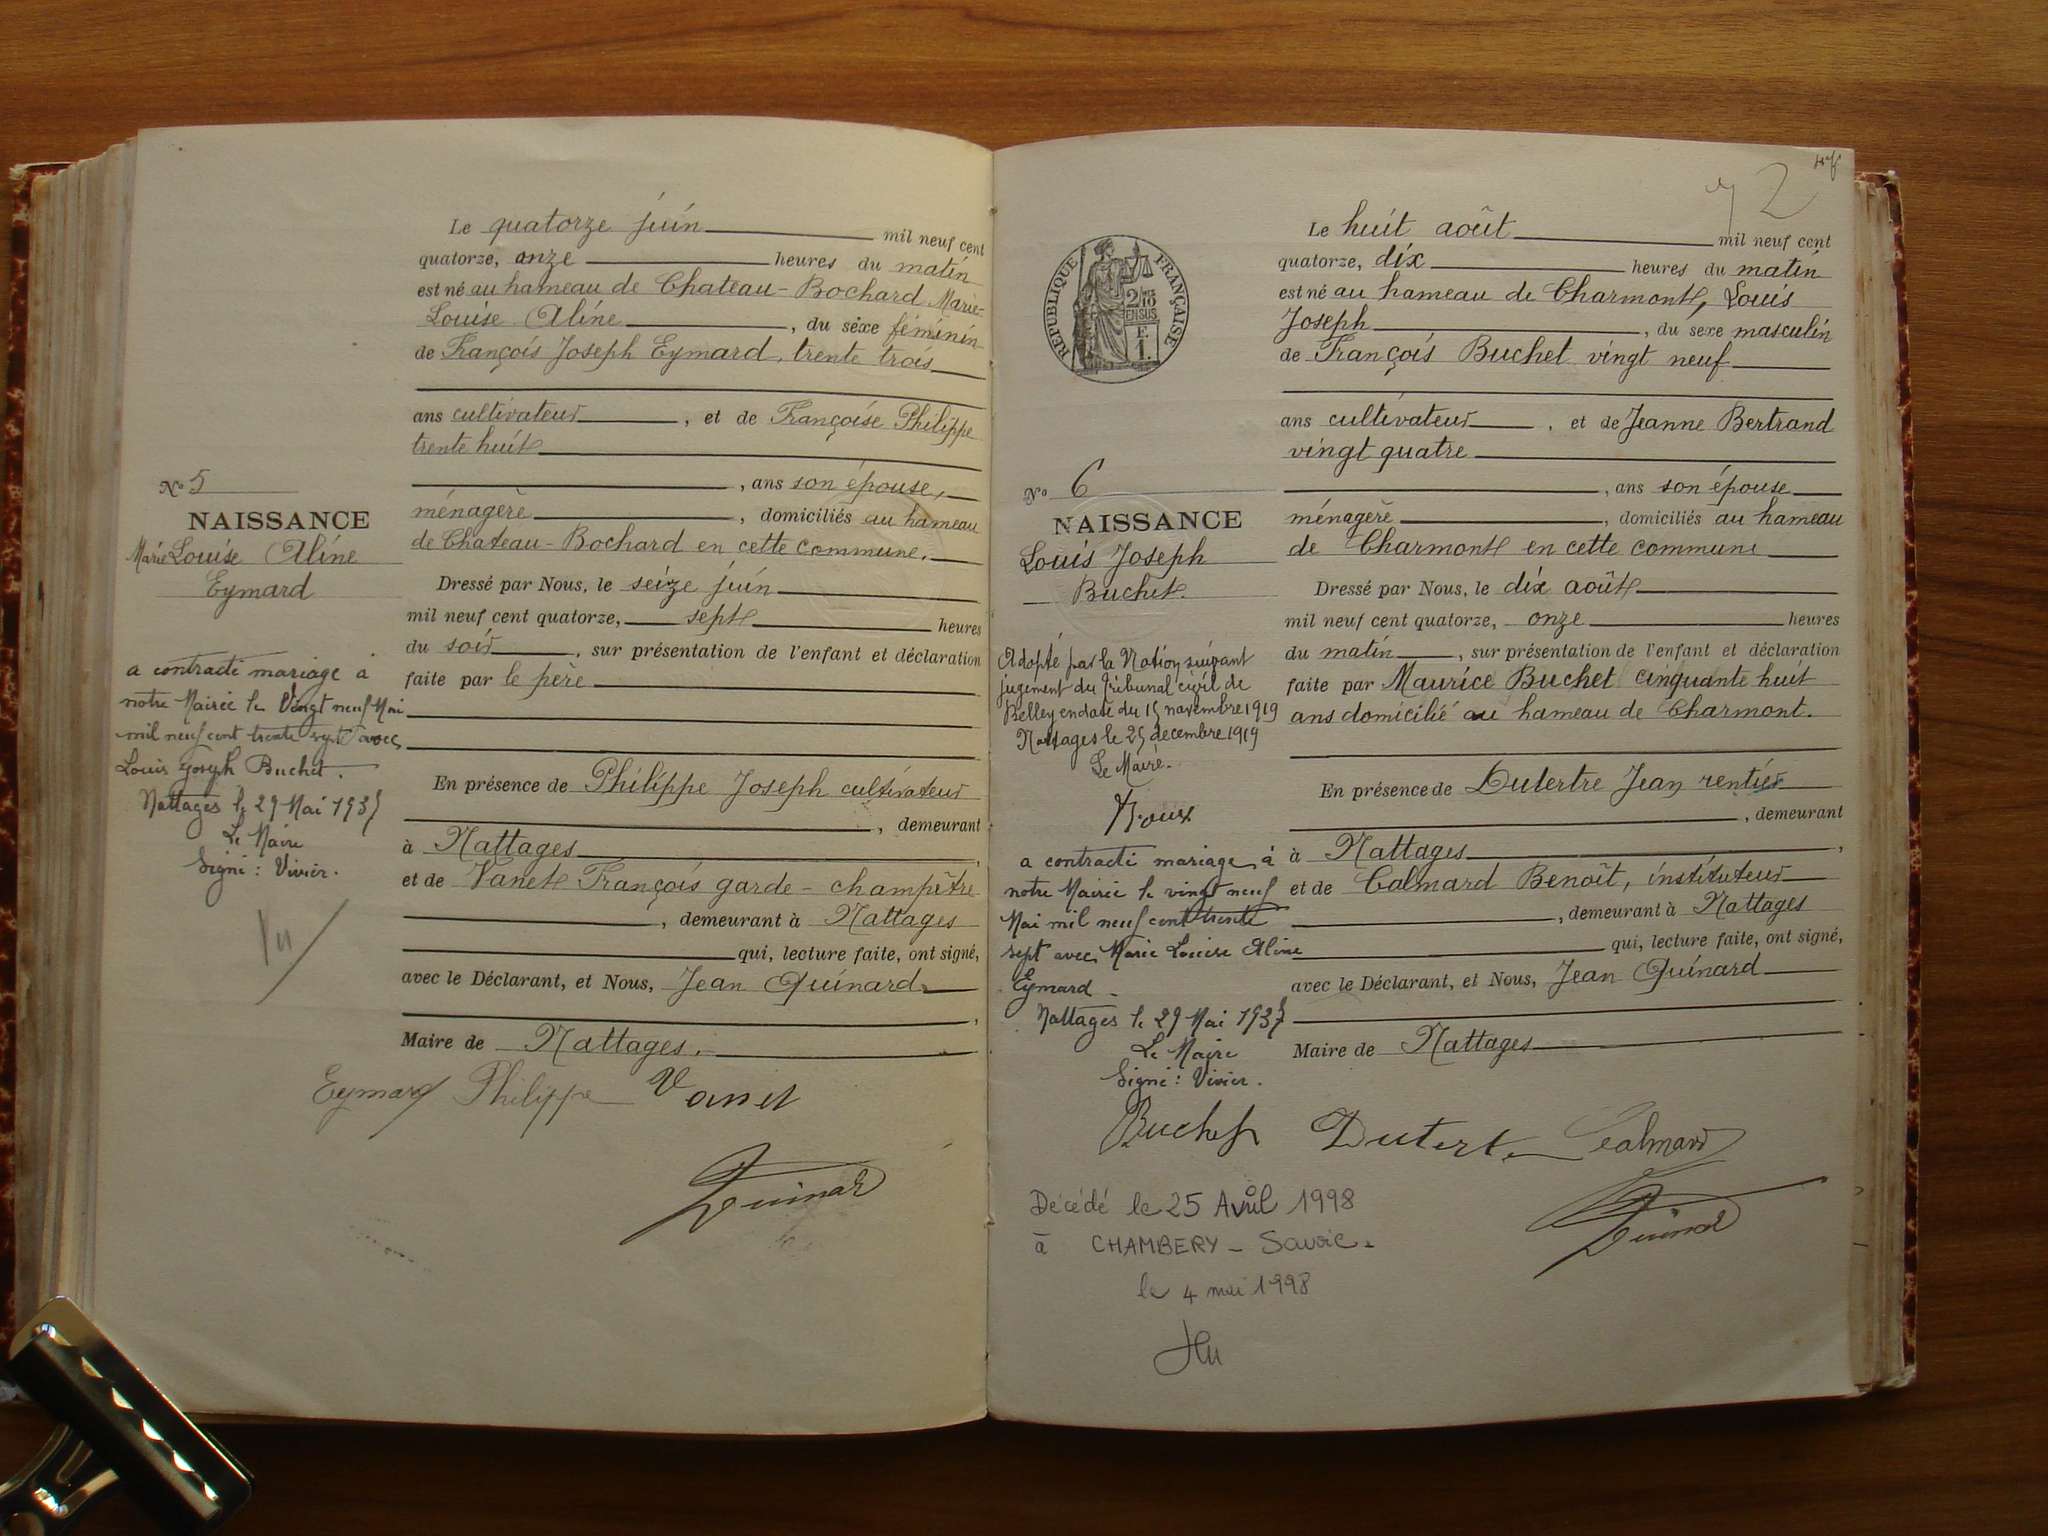 Le quatorze juin mil neuf cent
quatorze, onze heures du matin
est né au hameau de Chateau-Bochard Marie-
Louise Aline, du sexe féminin
de François Joseph Eymard, trente trois
ans cultivateur, et de Françoise Philippe
trente huit
, ans son épouse,
ménagère, domiciliés au hameau
de Chateau-Bochard en cette commune.
Dressé par Nous, le seize juin
mil neuf cent quatorze, sept heures
du soir, sur présentation de l'enfant et déclaration
faite par le père
En présence de Philippe Joseph cultivateur
, demeurant
à Nattages,
et de Vanet François garde-champêtre
, demeurant à Nattages
qui, lecture faite, ont signé,
avec le Déclarant, et Nous, Jean Quinard
,
Maire de Nattages.
Eymard Philippe Vanet
Quinard
No 5
NAISSANCE
Marie Louise Aline
Eymard
a contracté mariage à
notre Mairie le Vingt neuf Mai
mil neuf cent trente sept avec
Louis Joseph Buchet.
Nattages le 29 Mai 1937
Le Maire
Signé : Vivier.
72
RÉPUBLIQUE FRANÇAISE
2/10 EN SUS
Le huit août mil neuf cent
quatorze, dix heures du matin
est né au hameau de Charmont, Louis
Joseph, du sexe masculin
de François Buchet vingt neuf
ans cultivateur, et de Jeanne Bertrand
vingt quatre
, ans son épouse
ménagère, domiciliés au hameau
de Charmont en cette commune
Dressé par Nous, le dix août
mil neuf cent quatorze, onze heures
du matin, sur présentation de l'enfant et déclaration
faite par Maurice Buchet cinquante huit
ans domicilié au hameau de Charmont.
En présence de Dutertre Jean rentier
, demeurant
à Nattages,
et de Calmard Benoît, instituteur
, demeurant à Nattages
qui, lecture faite, ont signé,
avec le Déclarant, et Nous, Jean Quinard
Maire de Nattages
No 6
NAISSANCE
Louis Joseph
Buchet.
Adopté par la Nation suivant
jugement du Tribunal civil de
Belley en date du 15 novembre 1919
Nattages le 25 decembre 1919
Le Maire.
a contracté mariage à
notre Mairie le vingt neuf
Mai mil neuf cent trente
sept avec Marie Louise Aline
Eymard
Nattages le 29 Mai 1937
Le Maire
Signé : Vivier.
Buchet Dutertre Calmard
Quinard
Décédé le 25 Avril 1998
à CHAMBERY - Savoie.
le 4 mai 1998